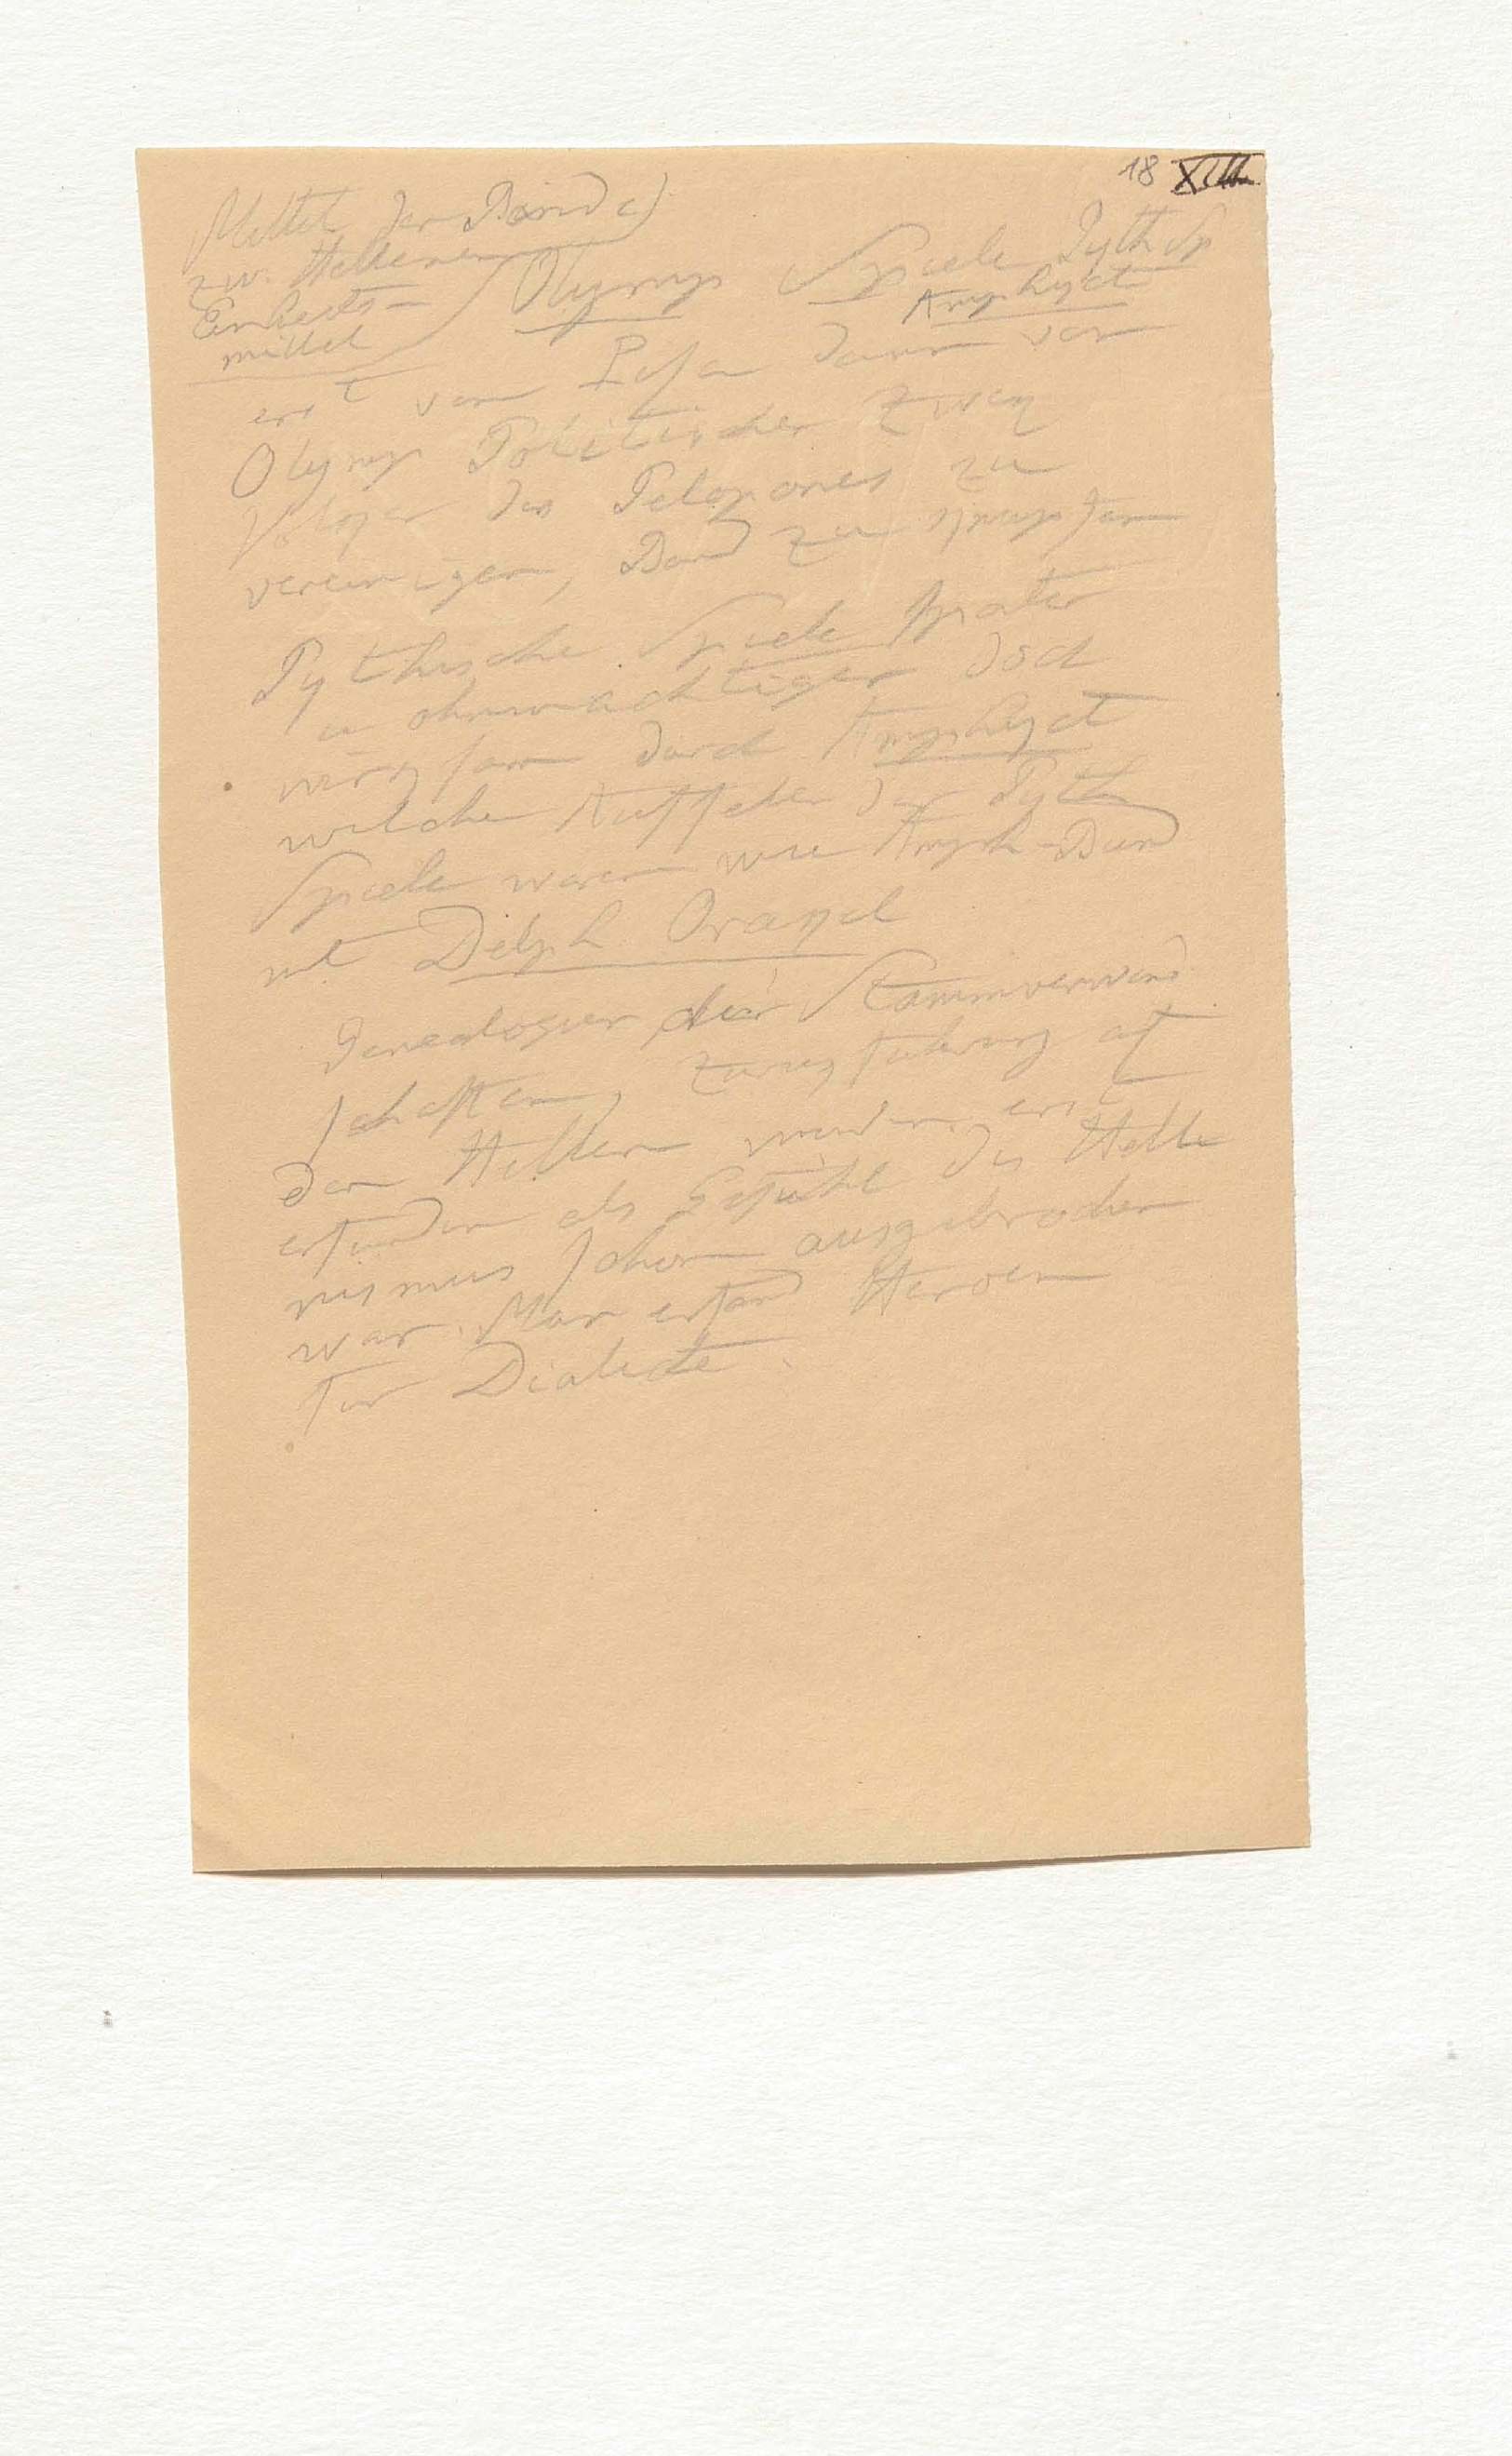 18 XVIII
Mittel der Bünd
zw. Hellenen
Einheits-
mittel
Olymp Spiele Pyth Sp
Amphyct
erst von Pisa dann von
Olymp Politischer Zweq
Völqer des Peloponnes zu
vereinigen, Band zu
Pythische Spiele später
u ohnmächtiger doch
wirqsam durch Amphyct
welche Aufseher der Pyth
Spiele waren wie Amph-Bund
mit Delph Oraqel
Genealogien der Stammverwand
schaften, Zurüqführung auf
den Hellen wurden erst
erfunden als Gefühl des Helle
nismus schon ausgebrochen
war. Man erfand Heroen
für Dialecte